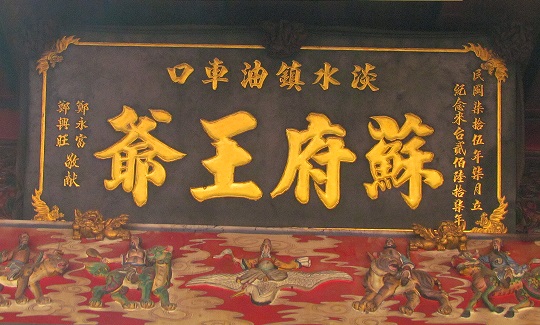 淡水鎮油車口
蘇府王爺
民國柒拾伍年柒月立
紀念來台貳佰陸拾柒年
鄭永富
鄭興旺
敬献